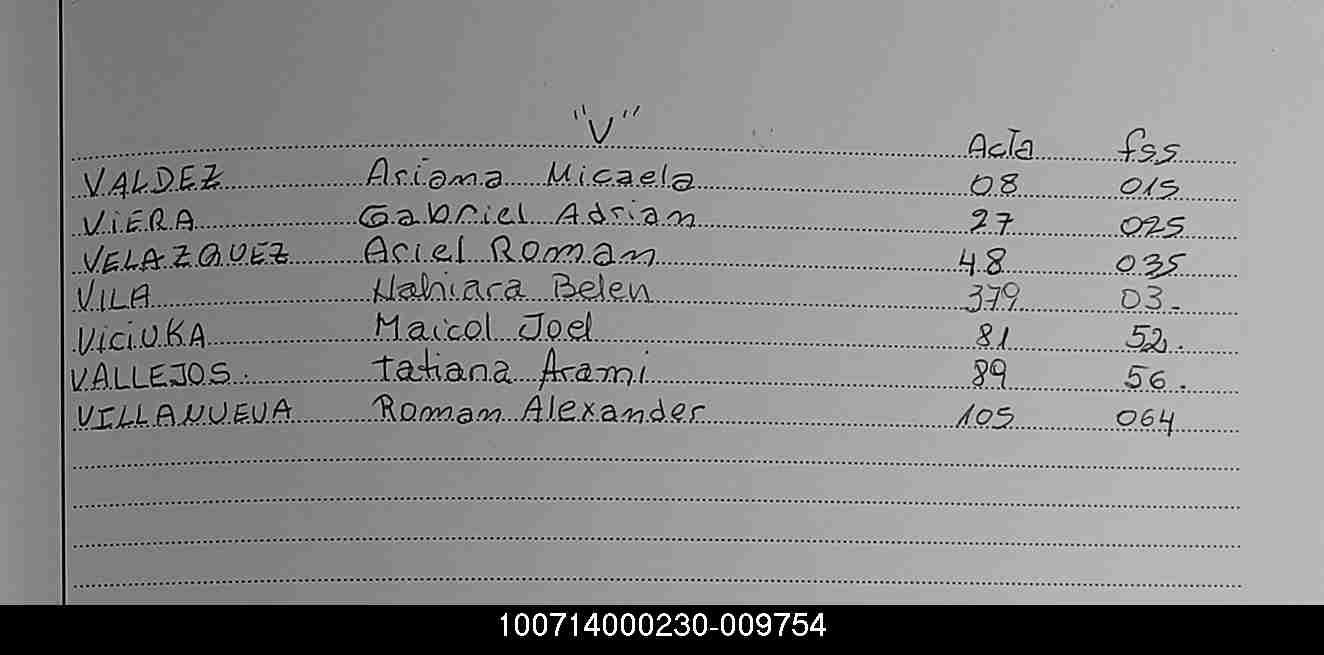 "V"
Acta fss
VALDEZ Ariana Micaela 08 015
ViERA Gabriel Adrian 27 025
VELAZQUEZ Ariel Roman 48 035
VILA Nahiara Belen 379 03.
ViCiUKA Maicol Joel 81 52.
VALLEJOS. Tatiana Arami 89 56.
VILLANUEVA Roman Alexander 105 064
100714000230-009754